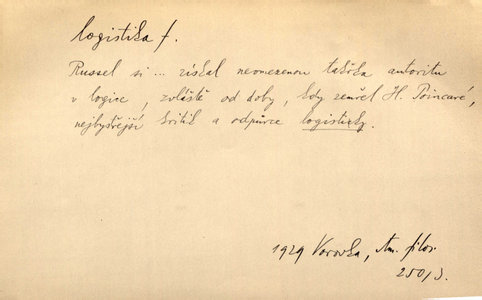 logistika f.
Russel si ... získal neomezenou takřka autoritu
v logice, zvláště od doby, kdy zemřel H. Poincaré,
nejbystřejší kritik a odpůrce logistiky.
1929 Vorovka, Am. filos.
250/3.